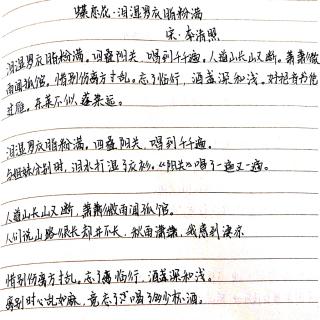 蝶恋花·泪湿罗衣脂粉满
宋·李清照
泪湿罗衣脂粉满。四叠阳关,唱到千千遍。人道山长山又断。萧萧微
雨闻孤馆。惜别伤离方寸乱。忘了临行,酒盏深和浅。好把音书凭
过雁。东莱不似蓬莱远。
泪湿罗衣脂粉满。四叠阳关,唱到千千遍。
与姐妹分别时,泪水打湿了衣衫。《阳关》唱了一遍又一遍。
人道山长山又断,萧萧微雨闻孤馆。
人们说山路很长却并不长,秋雨潇潇,我感到凄凉
惜别伤离方寸乱。忘了离临行,酒盏深和浅。
离别时心乱如麻,竟忘了喝了多少杯酒。